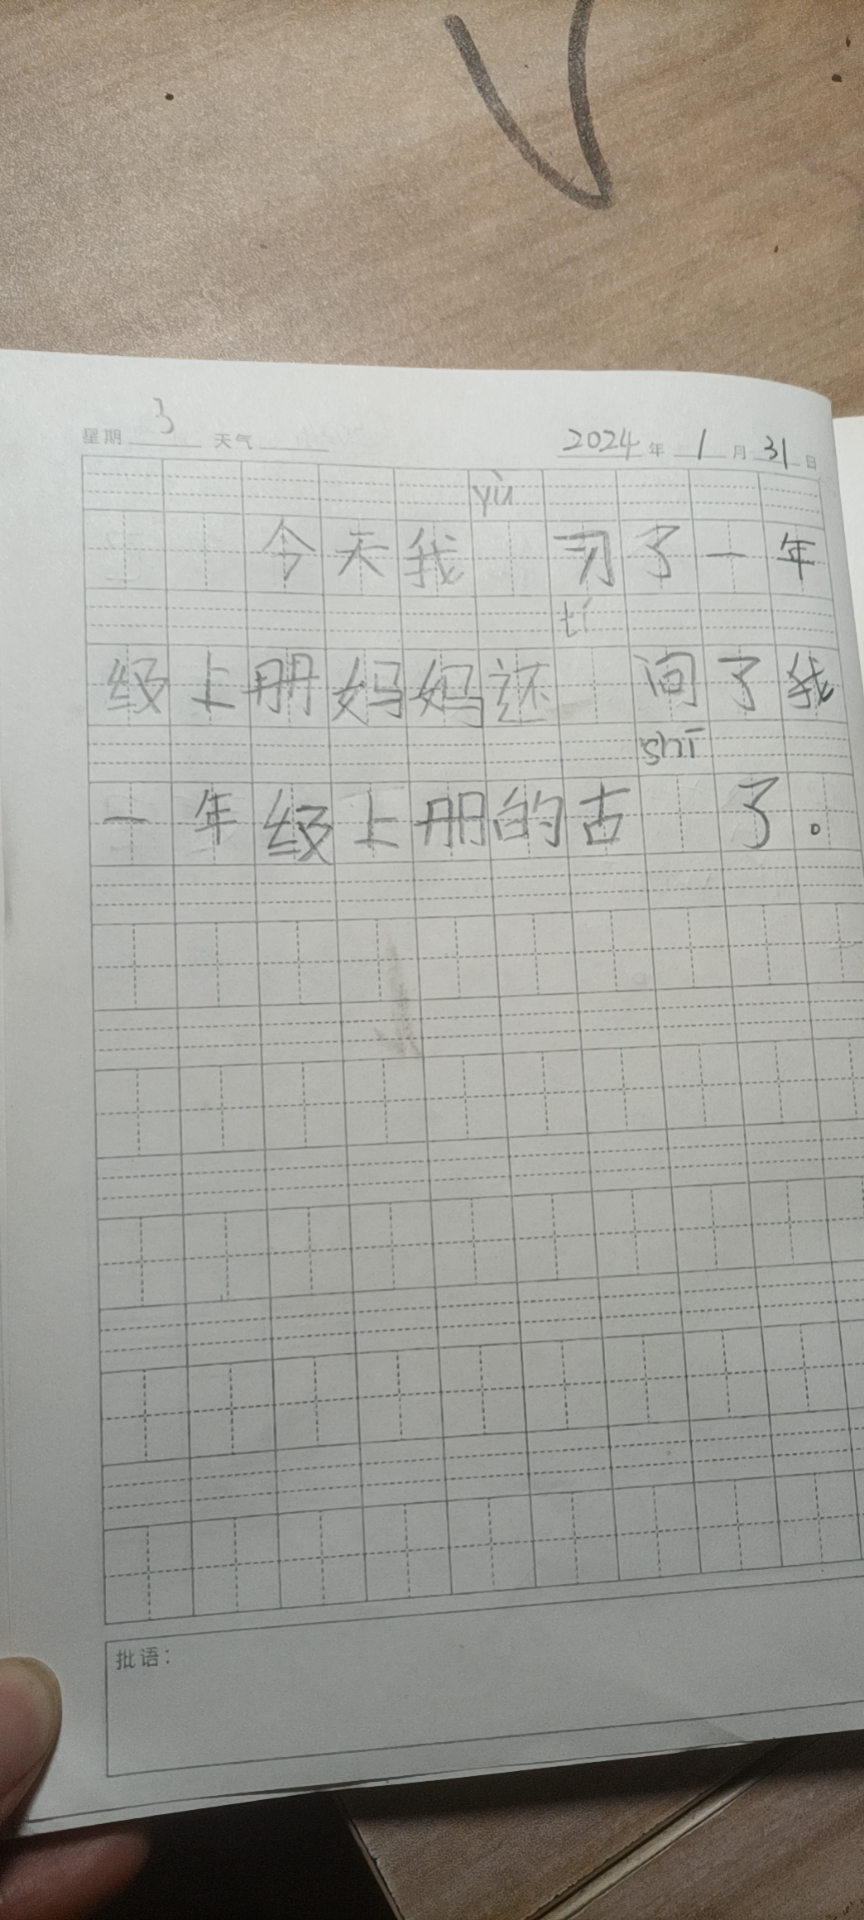 星期 3 天气 2024 年 1 月 31 日
yù
今天我 习了一年
tí
级上册妈妈还 问了我
shī
一年级上册的古 了。
批语：